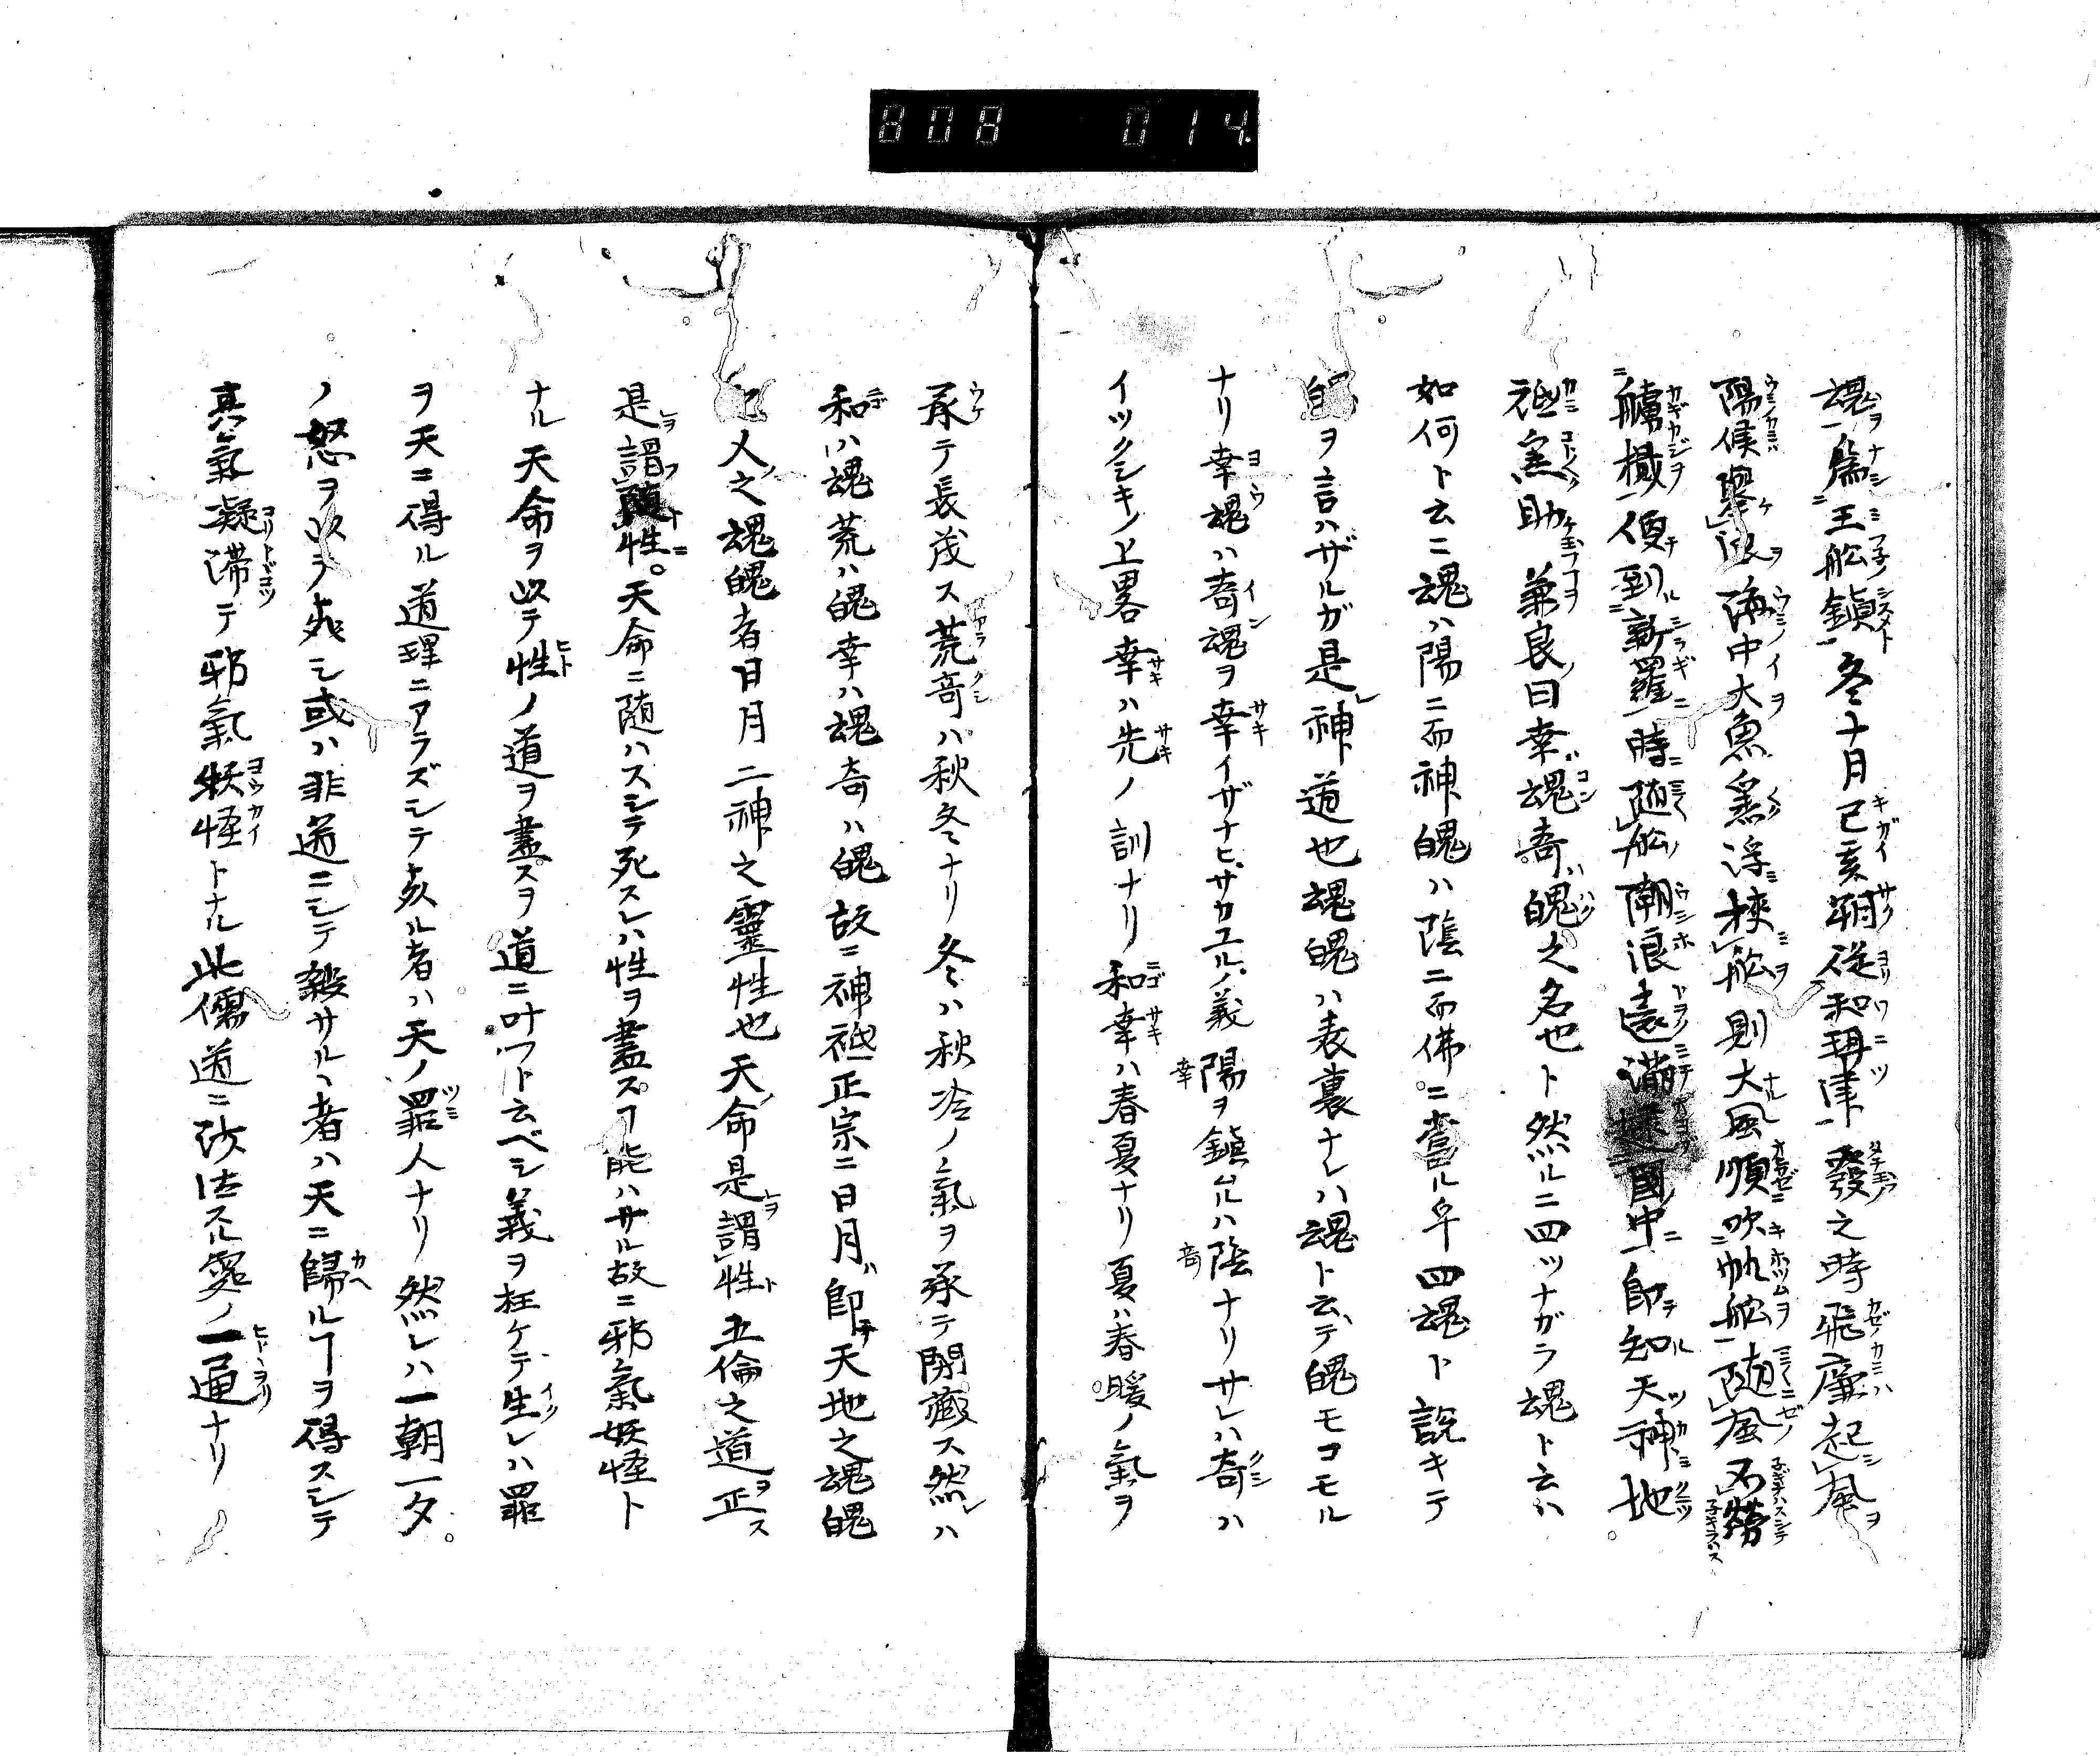 808 014
魂為王舩鎮冬十月己亥朔從和珥津發之時飛廉起風
陽侯擧浪海中大魚悉浮挾舩則大風順吹帆舶随風不勞
㯭檝便到新羅時随舩潮浪遠満逮國中即知天神地
祇悉助 兼良曰幸魂奇魄之名也ト然ルニ四ツナガラ魂ト云ハ
如何ト云ニ魂ハ陽ニ而神魄ハ陰ニ而佛ニ當ル早四魂ト説キテ
魄ヲ言ハザルガ是神道也魂魄ハ表裏ナレハ魂ト云テ魄モコモル
ナリ幸魂ハ奇魂ヲ幸イザナヒサカユルノ義陽ヲ鎮ムルハ陰ナリサレハ奇ハ
イツクシキノ上畧幸ハ先ノ訓ナリ和幸ハ春夏ナリ夏ハ春暖ノ氣ヲ
承テ長茂ス荒奇ハ秋冬ナリ冬ハ秋冷ノ氣ヲ承テ閉藏ス然レハ
和ハ魂荒ハ魄幸ハ魂奇ハ魄故ニ神祇正宗ニ日月即天地之魂魄
人之魂魄者日月二神之靈性也天命是謂性五倫之道正ス
是謂随性天命ニ随ハスシテ死スレハ性ヲ盡スヿ能ハサル故ニ邪氣妖怪ト
ナル天命ヲ以テ性ノ道ヲ盡スヲ道ニ叶フト云ベシ義ヲ枉ケテ生レハ罪
ヲ天ニ得ル道理ニアラズシテ死ル者ハ天ノ罪人ナリ然レハ一朝一夕
ノ怒ヲ以テ死シ或ハ非道ニシテ殺サルヽ者ハ天ニ歸ルヿヲ得スシテ
真氣凝滞テ邪氣妖怪トナル此儒道ニ沙汰スル霊ノ一通ナリ